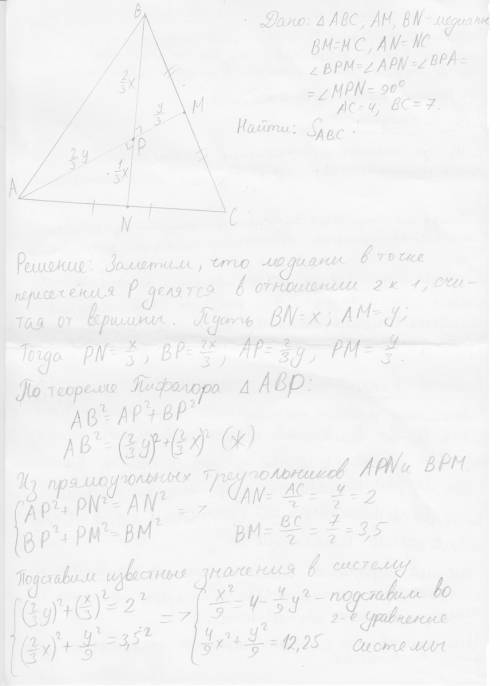 Дано: △ABC, AM, BN – медианы
BM = MC, AN = NC
∠BPM = ∠APN = ∠BPA =
= ∠MPN = 90°
AC = 4, BC = 7.
Найти: S_ABC.
B
2/3 x
y/3
M
P
2/3 y
1/3 x
A
N
C
Решение: Заметим, что медианы в точке
пересечения P делятся в отношении 2 к 1, счи-
тая от вершины. Пусть BN = x; AM = y;
Тогда PN = x/3, BP = 2x/3, AP = 2/3 y, PM = y/3.
По теореме Пифагора △ABP:
AB² = AP² + BP²
AB² = (2/3 y)² + (2/3 x)² (*)
Из прямоугольных треугольников APN и BPM
{ AP² + PN² = AN² => AN = AC/2 = 4/2 = 2
{ BP² + PM² = BM² BM = BC/2 = 7/2 = 3,5
Подставим известные значения в систему
{ (2/3 y)² + (x/3)² = 2² => { x²/9 = 4 - 4/9 y² – подставим во
2-е уравнение
{ (2/3 x)² + y²/9 = 3,5² { 4/9 x² + y²/9 = 12,25 системы